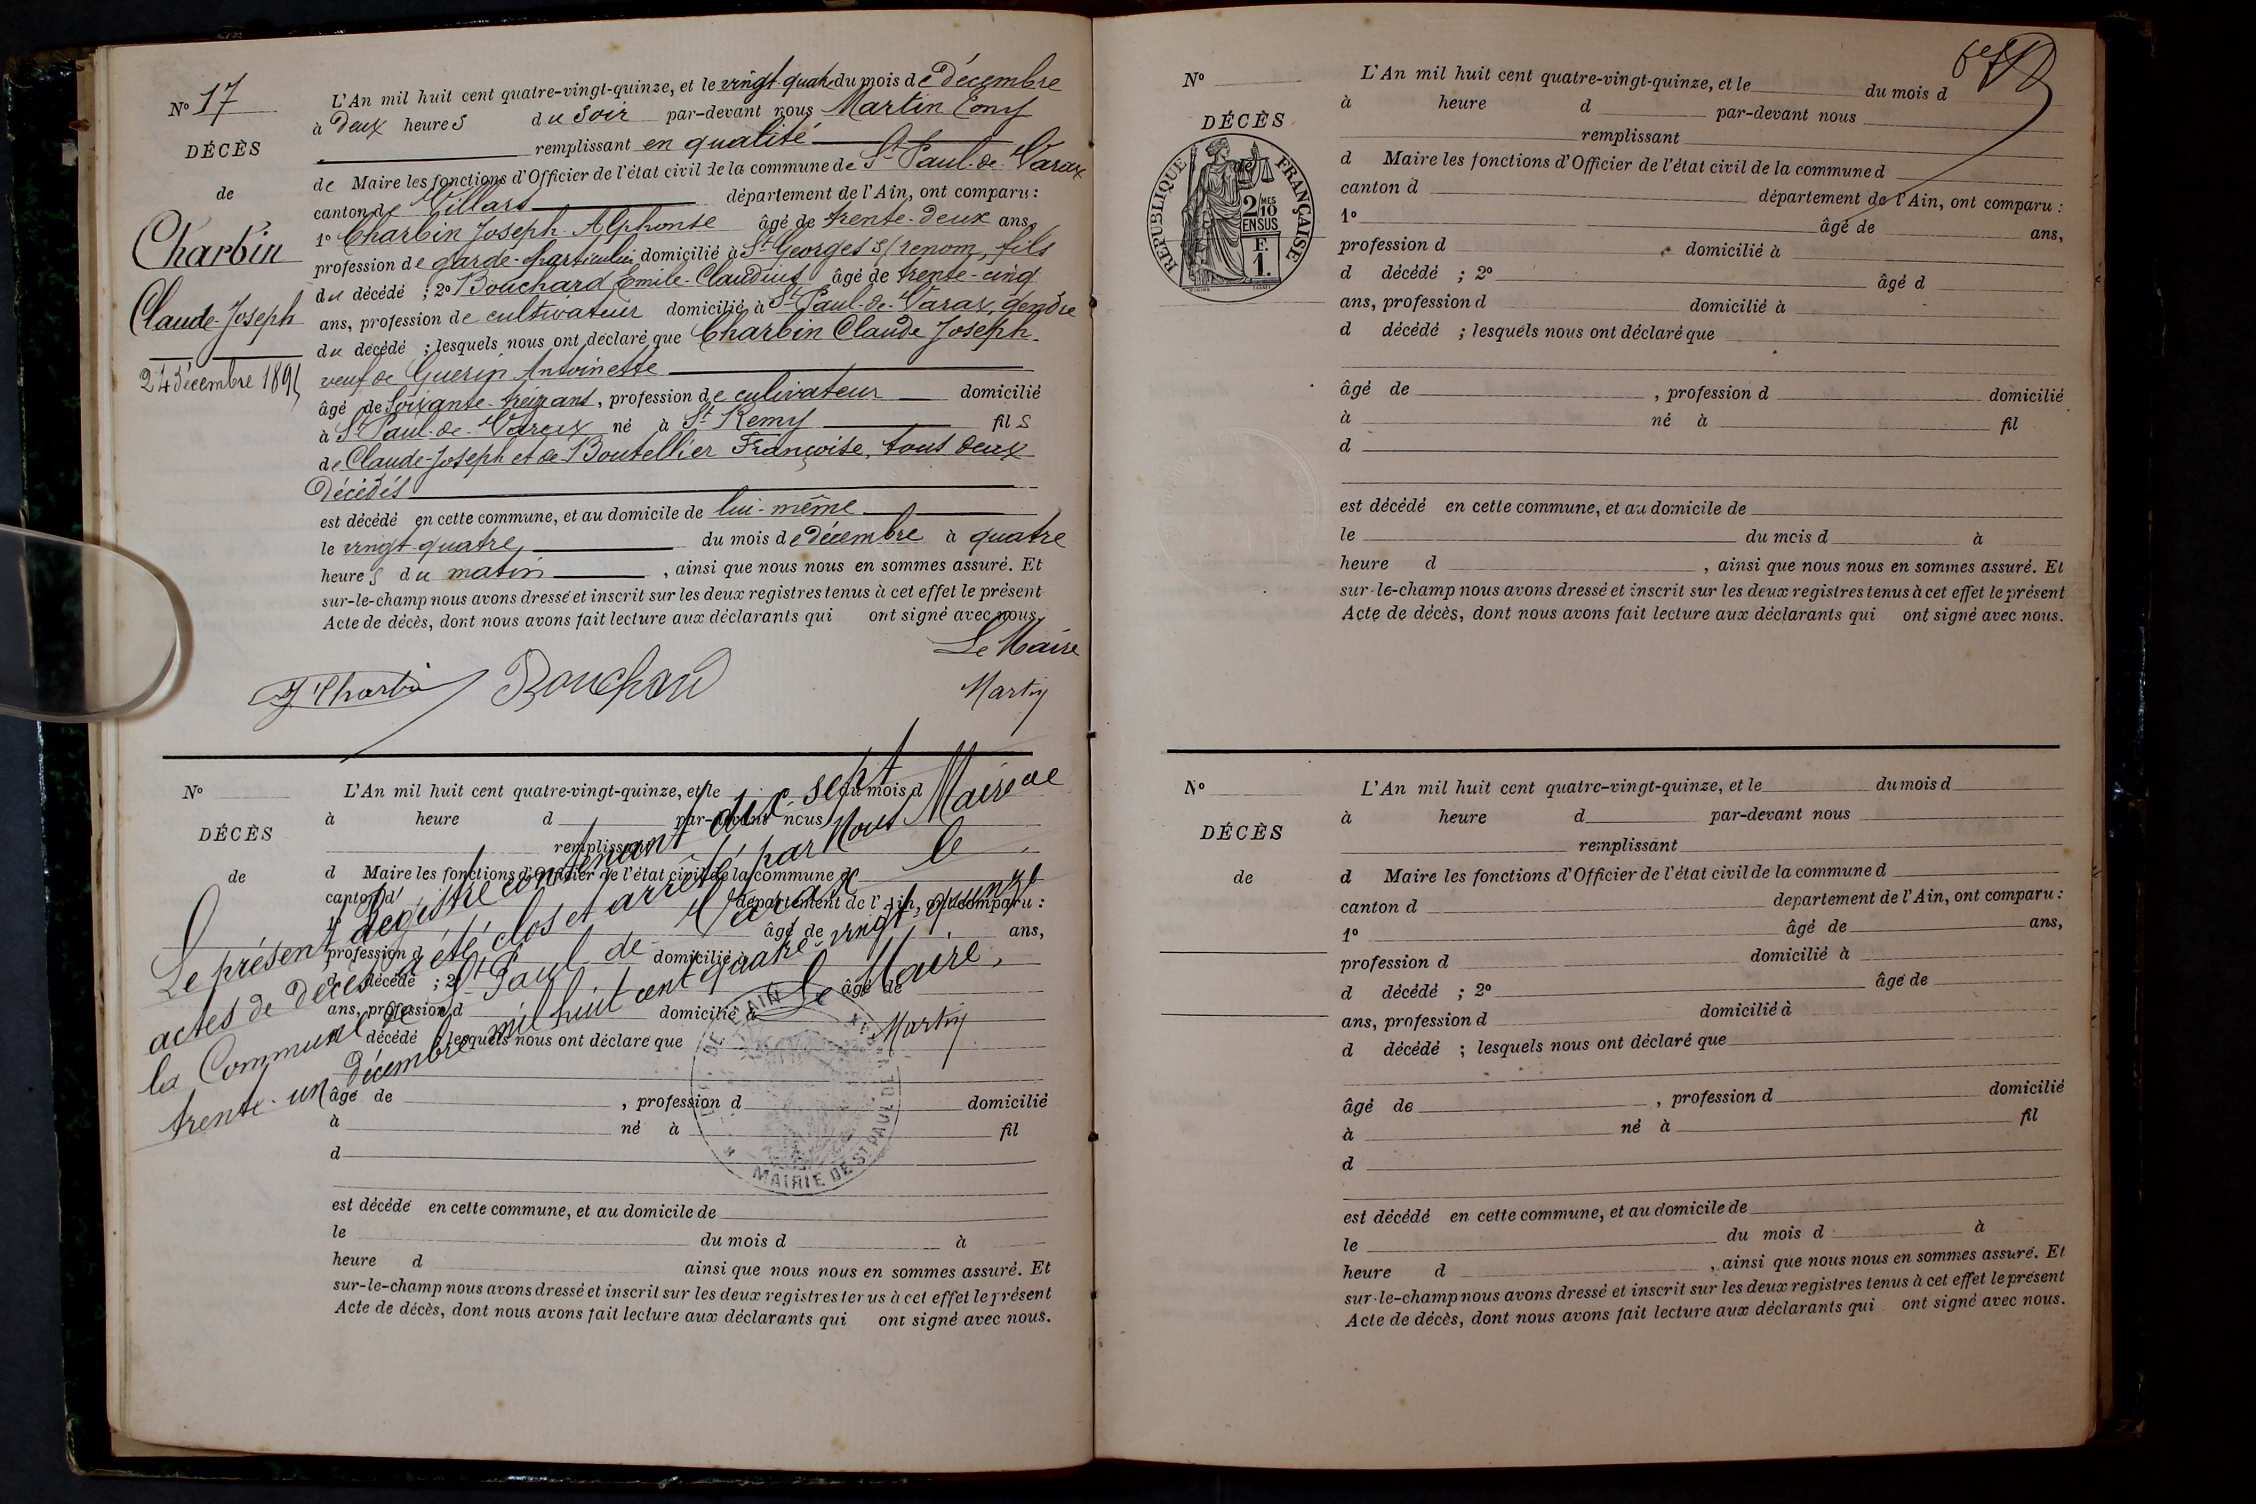 N° 17
DÉCÈS
de
Charbin
Claude-Joseph
24 décembre 1895
L'An mil huit cent quatre-vingt-quinze, et le vingt-quatre du mois de Décembre
à Deux heures du soir par-devant nous Martin Emy
remplissant en qualité
de Maire les fonctions d'Officier de l'état civil de la commune de St Paul-de-Varax
canton de Villars département de l'Ain, ont comparu :
1° Charbin Joseph-Alphonse âgé de trente-deux ans,
profession de garde-particulier domicilié à St Georges s/renom, fils
du décédé ; 2° Bouchard Emile-Claudius âgé de trente-cinq
ans, profession de cultivateur domicilié à St Paul-de-Varax, gendre
du décédé ; lesquels nous ont déclaré que Charbin Claude Joseph
veuf de Guerin Antoinette
âgé de Soixante-treize ans, profession de cultivateur domicilié
à St Paul-de-Varax né à St Remy fils
de Claude-Joseph et de Boutellier Françoise, tous deux
Décédés
est décédé en cette commune, et au domicile de lui-même
le vingt-quatre du mois de Décembre à quatre
heures du matin, ainsi que nous nous en sommes assuré. Et
sur-le-champ nous avons dressé et inscrit sur les deux registres tenus à cet effet le présent
Acte de décès, dont nous avons fait lecture aux déclarants qui ont signé avec nous.
Le Maire
J Charbin Bouchard Martin
N°
DÉCÈS
de
L'An mil huit cent quatre-vingt-quinze, et le du mois d
à heure d par-devant nous
remplissant
d Maire les fonctions d'Officier de l'état civil de la commune d
canton d département de l'Ain, ont comparu :
1° âgé de ans,
profession d domicilié à
d décédé ; 2° âgé de
ans, profession d domicilié à
d décédé ; lesquels nous ont déclaré que
âgé de , profession d domicilié
à né à fil
d
est décédé en cette commune, et au domicile de
le du mois d à
heure d ainsi que nous nous en sommes assuré. Et
sur-le-champ nous avons dressé et inscrit sur les deux registres tenus à cet effet le présent
Acte de décès, dont nous avons fait lecture aux déclarants qui ont signé avec nous.
Le présent Registre contenant dix-sept
actes de Décès a été clos et arrêté par Nous Maire de
la Commune de St Paul de Varax le
trente-un Décembre mil huit cent quatre-vingt-quinze
Le Maire,
Martin
MAIRIE DE ST PAUL DE
AIN
N°
DÉCÈS
RÉPUBLIQUE FRANÇAISE
2 MES
10
EN SUS
F.
1.
L'An mil huit cent quatre-vingt-quinze, et le du mois d
à heure d par-devant nous
remplissant
d Maire les fonctions d'Officier de l'état civil de la commune d
canton d département de l'Ain, ont comparu :
1° âgé de ans,
profession d domicilié à
d décédé ; 2° âgé d
ans, profession d domicilié à
d décédé ; lesquels nous ont déclaré que
âgé de , profession d domicilié
à né à fil
d
est décédé en cette commune, et au domicile de
le du mois d à
heure d , ainsi que nous nous en sommes assuré. Et
sur-le-champ nous avons dressé et inscrit sur les deux registres tenus à cet effet le présent
Acte de décès, dont nous avons fait lecture aux déclarants qui ont signé avec nous.
N°
DÉCÈS
de
L'An mil huit cent quatre-vingt-quinze, et le du mois d
à heure d par-devant nous
remplissant
d Maire les fonctions d'Officier de l'état civil de la commune d
canton d departement de l'Ain, ont comparu :
1° âgé de ans,
profession d domicilié à
d décédé ; 2° âgé de
ans, profession d domicilié à
d décédé ; lesquels nous ont déclaré que
âgé de , profession d domicilié
à né à fil
d
est décédé en cette commune, et au domicile de
le du mois d à
heure d , ainsi que nous nous en sommes assuré. Et
sur-le-champ nous avons dressé et inscrit sur les deux registres tenus à cet effet le présent
Acte de décès, dont nous avons fait lecture aux déclarants qui ont signé avec nous.